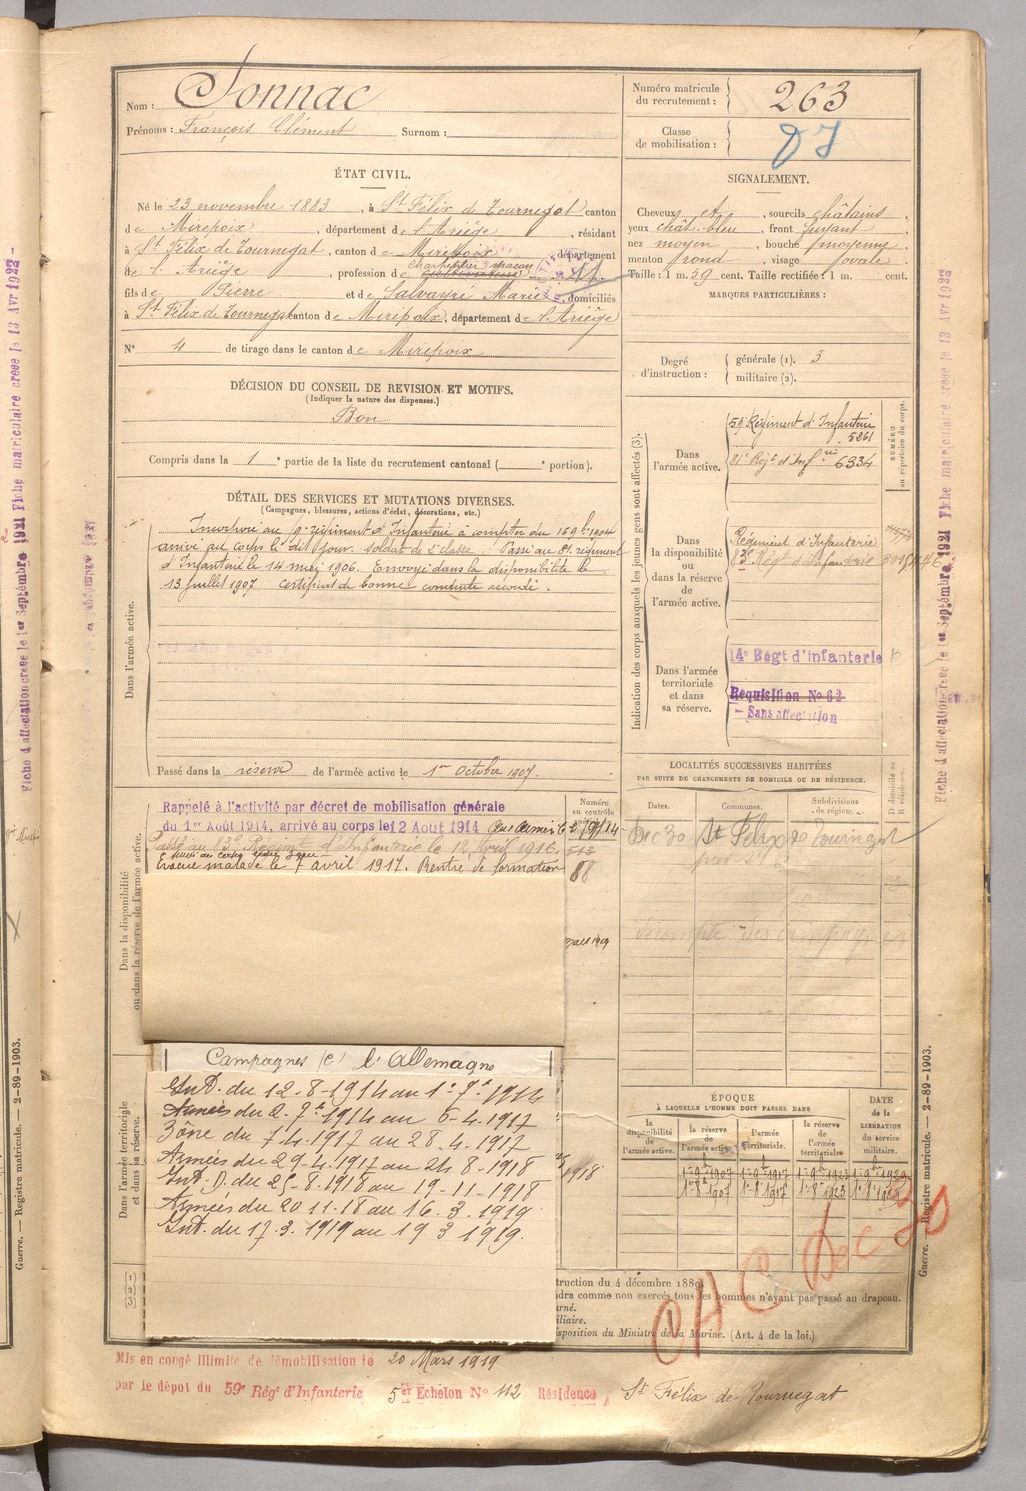 Nom : Sonnac
Prénoms : François Clément Surnom :
Numéro matricule du recrutement : 263
Classe de mobilisation : 07
ÉTAT CIVIL.
Né le 23 novembre 1883, à St Félix de Tournegat canton
de Mirepoix, département de l'Ariège, résidant
à St Félix de Tournegat, canton de Mirepoix département
de l'Ariège, profession de Charpentier maçon
fils de Pierre et de Salvayre Marie domiciliés
à St Félix de Tournegat canton de Mirepoix, département de l'Ariège
N° 4 de tirage dans le canton de Mirepoix
SIGNALEMENT.
Cheveux ct, sourcils châtains,
yeux chât. bleu, front fuyant
nez moyen, bouche moyenne
menton rond, visage ovale
Taille : 1 m. 59 cent. Taille rectifiée : 1 m. cent.
MARQUES PARTICULIÈRES :
Degré d'instruction : générale (1). 3
militaire (2).
DÉCISION DU CONSEIL DE REVISION ET MOTIFS.
(Indiquer la nature des dispenses.)
Bon
Compris dans la 1e partie de la liste du recrutement cantonal ( e portion).
DÉTAIL DES SERVICES ET MUTATIONS DIVERSES.
(Campagnes, blessures, actions d'éclat, décorations, etc.)
Dans l'armée active.
Incorporé au 59e régiment d'Infanterie à compter du 16 9bre 1904
arrivé au corps le dit jour. soldat de 2e classe. Passé au 81e régiment
d'Infanterie le 14 mai 1906. Envoyé dans la disponibilité le
13 juillet 1907 certificat de bonne conduite accordé.
Passé dans la réserve de l'armée active le 1er Octobre 1907.
Indication des corps auxquels les jeunes gens sont affectés (3).
NUMÉRO au répertoire du corps.
Dans l'armée active.
59e Régiment d'Infanterie
5261
81e Régt d'Infrie 6934
Dans la disponibilité ou dans la réserve de l'armée active.
Régiment d'Infanterie
83e Régt d'Infanterie
Dans l'armée territoriale et dans sa réserve.
14e Régt d'Infanterie
Requisition No 62
- Sans affectation
LOCALITÉS SUCCESSIVES HABITÉES
PAR SUITE DE CHANGEMENTS DE DOMICILE OU DE RÉSIDENCE.
Dates. Communes. Subdivisions de région. D domicile ou R résidence.
Dec 30 St Félix de Tournegat
décompte des campagnes
Dans la disponibilité ou dans la réserve de l'armée active.
Rappelé à l'activité par décret de mobilisation générale
du 1er Août 1914, arrivé au corps le 12 Aout 1914 Aux armées le 2/9/14
Passé au 83e Régiment d'Infanterie le 12 Avril 1916.
513
Evacué malade le 7 avril 1917. Rentré de formation
88
Dans l'armée territoriale et dans sa réserve.
Campagnes (c) l'Allemagne
Int. du 12-8-1914 au 1er 7bre 1914
Armées du 2. 7bre 1914 au 6-4-1917
Zône du 7.4.1917 au 28.4.1917
Armées du 29-4-1917 au 24-8-1918
Int. D. du 25-8-1918 au 19-11-1918
Armées du 20 11.18 au 16.3.1919
Int. du 17.3.1919 au 19 3 1919.
1918
ÉPOQUE
À LAQUELLE L'HOMME DOIT PASSER DANS
la disponibilité de l'armée active. la réserve de l'armée active. l'armée territoriale. la réserve de l'armée territoriale.
DATE de la LIBÉRATION du service militaire.
(1) (2) (3)
truction du 4 décembre 1889
dra comme non exercés tous les hommes n'ayant pas passé au drapeau.
urné.
iliaire.
isposition du Ministre de la Marine. (Art. 4 de la loi.)
Mis en congé illimité de démobilisation le 20 Mars 1919
par le dépot du 59e Régt d'Infanterie 5er Echelon No 112 Résidence, St Félix de Tournegat
Fiche d'affectation créée le 1er Septembre 1921 Fiche matriculaire créée le 13 Avr 1922
Guerre. — Registre matricule. — 2-89-1903.